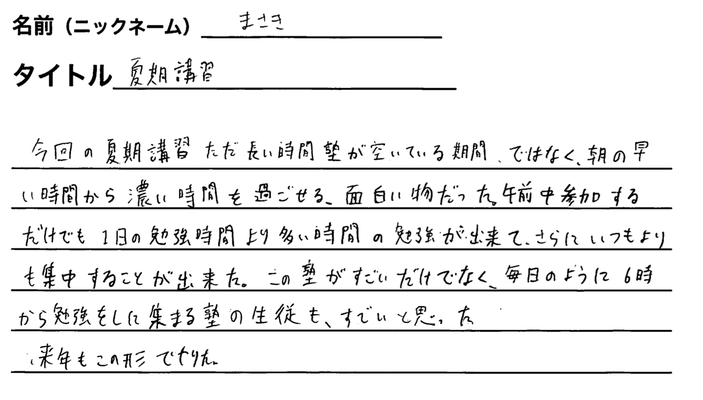 名前（ニックネーム） まさき
タイトル 夏期講習
今回の夏期講習ただ長い時間塾が空いている期間、ではなく、朝の早
い時間から濃い時間を過ごせる、面白い物だった。午前中参加する
だけでも1日の勉強時間より多い時間の勉強が出来て、さらにいつもより
も集中することが出来た。この塾がすごいだけでなく、毎日のように6時
から勉強をしに集まる塾の生徒も、すごいと思った
来年もこの形でやりたい